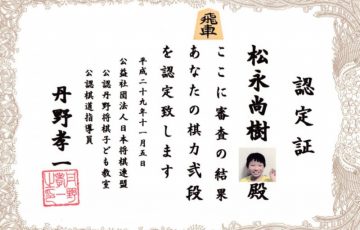 飛車
認定証
松永尚樹殿
ここに審査の結果
あなたの棋力弐段
を認定致します
平成二十九年十一月五日
公益社団法人日本将棋連盟
公認丹野将棋子ども教室
公認棋道指導員
丹野孝一